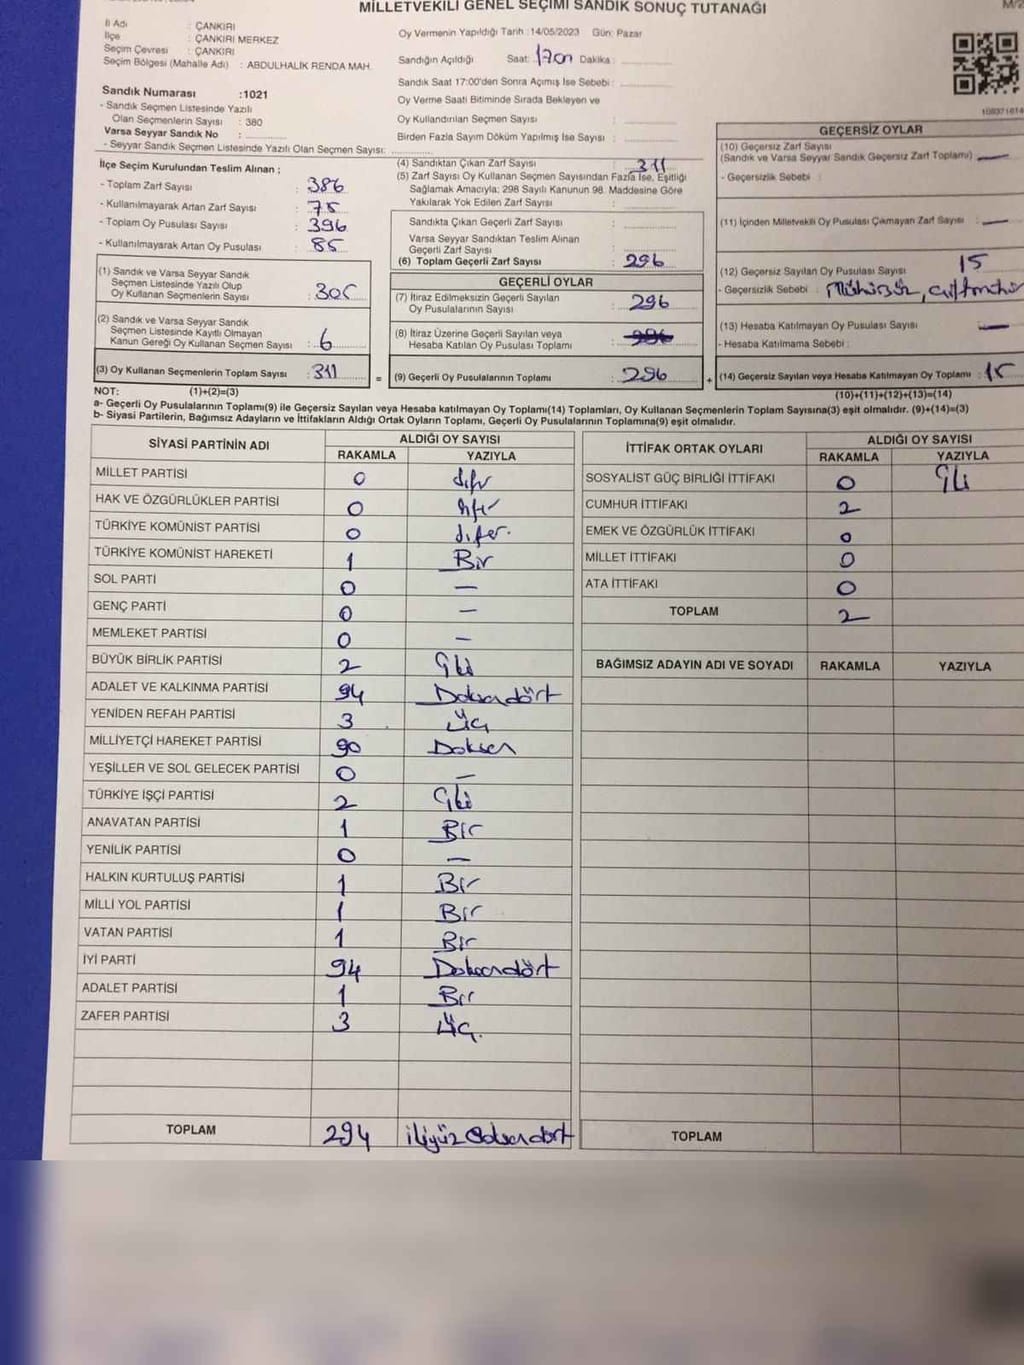 MİLLETVEKİLİ GENEL SEÇİMİ SANDIK SONUÇ TUTANAĞI
İl Adı : ÇANKIRI
İlçe : ÇANKIRI MERKEZ
Seçim Çevresi : ÇANKIRI
Seçim Bölgesi (Mahalle Adı) : ABDULHALIK RENDA MAH.
Sandık Numarası :1021
- Sandık Seçmen Listesinde Yazılı
Olan Seçmenlerin Sayısı : 380
Varsa Seyyar Sandık No :
- Seyyar Sandık Seçmen Listesinde Yazılı Olan Seçmen Sayısı:
Oy Vermenin Yapıldığı Tarih :14/05/2023 Gün: Pazar
Sandığın Açıldığı Saat: 1700 Dakika :
Sandık Saat 17:00'den Sonra Açımış İse Sebebi :
Oy Verme Saati Bitiminde Sırada Bekleyen ve
Oy Kullandırılan Seçmen Sayısı :
Birden Fazla Sayım Döküm Yapılmış İse Sayısı :
İlçe Seçim Kurulundan Teslim Alınan ;
- Toplam Zarf Sayısı : 386
- Kullanılmayarak Artan Zarf Sayısı : 75
- Toplam Oy Pusulası Sayısı : 396
- Kullanılmayarak Artan Oy Pusulası : 85
(1) Sandık ve Varsa Seyyar Sandık
Seçmen Listesinde Yazılı Olup
Oy Kullanan Seçmenlerin Sayısı : 305
(2) Sandık ve Varsa Seyyar Sandık
Seçmen Listesinde Kayıtlı Olmayan
Kanun Gereği Oy Kullanan Seçmen Sayısı : 6
(3) Oy Kullanan Seçmenlerin Toplam Sayısı : 311
(4) Sandıktan Çıkan Zarf Sayısı : 311
(5) Zarf Sayısı Oy Kullanan Seçmen Sayısından Fazla İse, Eşitliği
Sağlamak Amacıyla; 298 Sayılı Kanunun 98. Maddesine Göre
Yakılarak Yok Edilen Zarf Sayısı :
Sandıkta Çıkan Geçerli Zarf Sayısı :
Varsa Seyyar Sandıktan Teslim Alınan
Geçerli Zarf Sayısı :
(6) Toplam Geçerli Zarf Sayısı : 296
GEÇERLİ OYLAR
(7) İtiraz Edilmeksizin Geçerli Sayılan
Oy Pusulalarının Sayısı : 296
(8) İtiraz Üzerine Geçerli Sayılan veya
Hesaba Katılan Oy Pusulası Toplamı : 296
= (9) Geçerli Oy Pusulalarının Toplamı : 296
GEÇERSİZ OYLAR
(10) Geçersiz Zarf Sayısı
(Sandık ve Varsa Seyyar Sandık Geçersiz Zarf Toplamı) : —
- Geçersizlik Sebebi :
(11) İçinden Milletvekili Oy Pusulası Çıkmayan Zarf Sayısı : —
(12) Geçersiz Sayılan Oy Pusulası Sayısı : 15
- Geçersizlik Sebebi : Mühürsüz,
(13) Hesaba Katılmayan Oy Pusulası Sayısı : —
- Hesaba Katılmama Sebebi :
+ (14) Geçersiz Sayılan veya Hesaba Katılmayan Oy Toplamı : 15
NOT: (1)+(2)=(3)
(10)+(11)+(12)+(13)=(14)
a- Geçerli Oy Pusulalarının Toplamı(9) ile Geçersiz Sayılan veya Hesaba katılmayan Oy Toplamı(14) Toplamları, Oy Kullanan Seçmenlerin Toplam Sayısına(3) eşit olmalıdır. (9)+(14)=(3)
b- Siyasi Partilerin, Bağımsız Adayların ve İttifakların Aldığı Ortak Oyların Toplamı, Geçerli Oy Pusulalarının Toplamına(9) eşit olmalıdır.
SİYASİ PARTİNİN ADI ALDIĞI OY SAYISI
RAKAMLA YAZIYLA
MİLLET PARTİSİ 0 sıfır
HAK VE ÖZGÜRLÜKLER PARTİSİ 0 sıfır
TÜRKİYE KOMÜNİST PARTİSİ 0 sıfır.
TÜRKİYE KOMÜNİST HAREKETİ 1 Bir
SOL PARTİ 0 —
GENÇ PARTİ 0 —
MEMLEKET PARTİSİ 0 —
BÜYÜK BİRLİK PARTİSİ 2 iki
ADALET VE KALKINMA PARTİSİ 94 Doksandört
YENİDEN REFAH PARTİSİ 3 Üç
MİLLİYETÇİ HAREKET PARTİSİ 90 Doksan
YEŞİLLER VE SOL GELECEK PARTİSİ 0 —
TÜRKİYE İŞÇİ PARTİSİ 2 iki
ANAVATAN PARTİSİ 1 Bir
YENİLİK PARTİSİ 0 —
HALKIN KURTULUŞ PARTİSİ 1 Bir
MİLLİ YOL PARTİSİ 1 Bir
VATAN PARTİSİ 1 Bir
İYİ PARTİ 94 Doksandört
ADALET PARTİSİ 1 Bir
ZAFER PARTİSİ 3 Üç.
TOPLAM 294 ikiyüz doksandört
İTTİFAK ORTAK OYLARI ALDIĞI OY SAYISI
RAKAMLA YAZIYLA
SOSYALİST GÜÇ BİRLİĞİ İTTİFAKI 0 iki
CUMHUR İTTİFAKI 2
EMEK VE ÖZGÜRLÜK İTTİFAKI 0
MİLLET İTTİFAKI 0
ATA İTTİFAKI 0
TOPLAM 2
BAĞIMSIZ ADAYIN ADI VE SOYADI RAKAMLA YAZIYLA
TOPLAM